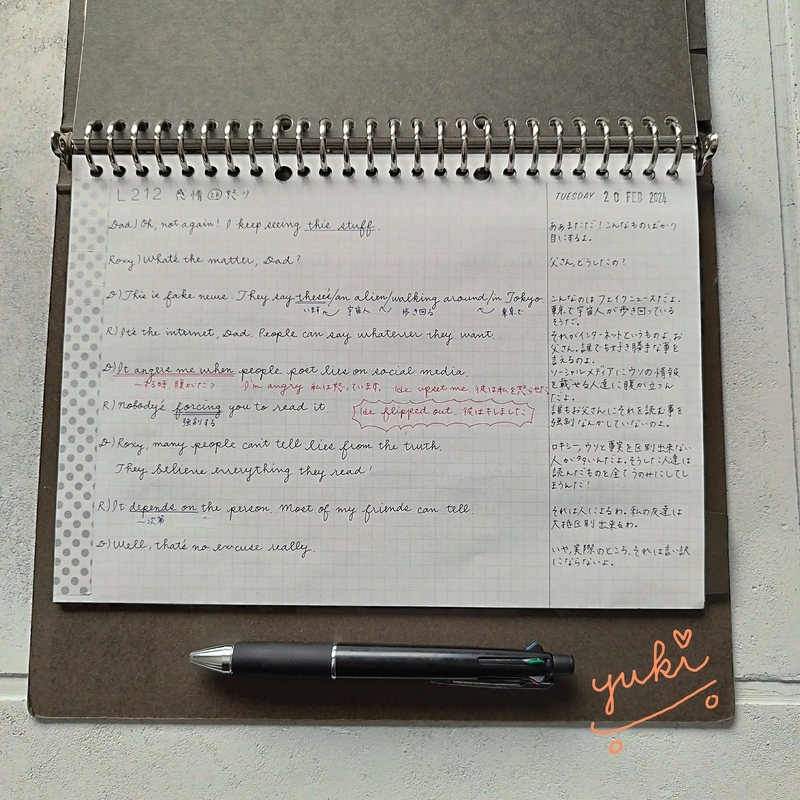 L212 感情 26 怒り
TUESDAY 20 FEB 2024
Dad) Oh, not again! I keep seeing this stuff.
ああまただ！こんなものばかり
目にするよ。
Roxy) What's the matter, Dad?
父さん、どうしたの？
D) This is fake news. They say there's/an alien/walking around/in Tokyo
います 宇宙人 歩き回る 東京で
こんなのはフェイクニュースだよ。
東京で宇宙人が歩き回っている
そうだ。
R) It's the internet, Dad. People can say whatever they want.
それがインターネットというものよ、お
父さん。誰でも好き勝手な事を
言えるのよ。
D) It angers me when people post lies on social media.
〜する時、腹がたつ I'm angry 私は怒っています。 He upset me. 彼は私を怒らせた
ソーシャルメディアにウソの情報
を載せる人達に腹が立つん
だよ。
R) Nobody's forcing you to read it.
強制する
He flipped out. 彼はキレました
誰もお父さんにそれを読む事を
強制なんかしていないのよ。
D) Roxy, many people can't tell lies from the truth.
They believe everything they read!
ロキシー、ウソと事実を区別出来ない
人が多いんだよ。そうした人達は
読んだものを全てうのみにしてし
まうんだ！
R) It depends on the person. Most of my friends can tell.
〜次第
それは人によるわ。私の友達は
大抵区別出来るわ。
D) Well, that's no excuse really.
いや、実際のところ、それは言い訳
にならないよ。
yuki